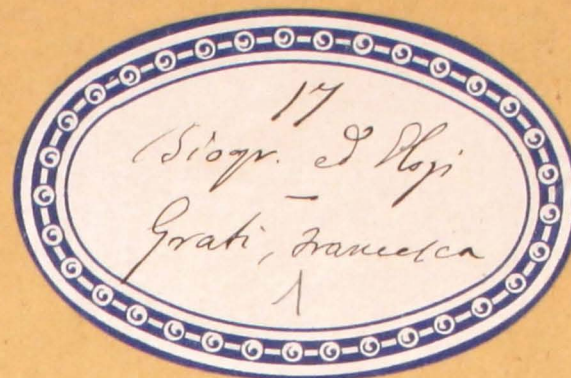 17
Biogr. ed Elogi
—
Grati, Francesca
1